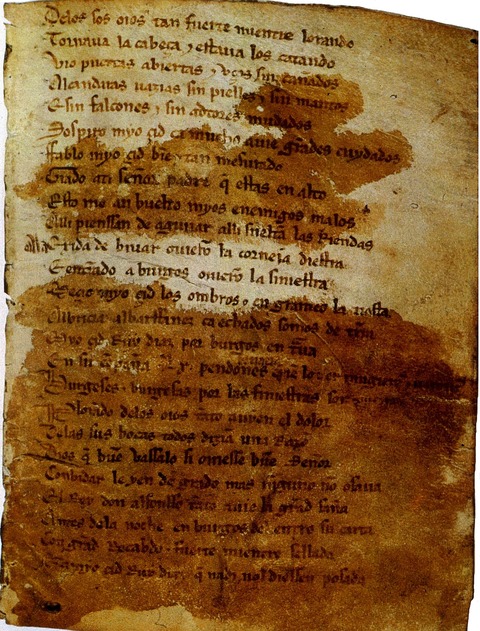 Delos sos oios tan fuerte mientre lorando
Tornaua la cabeça ⁊ estaua los catando
Vio puertas abiertas ⁊ vços sin cañados
Alcandaras uazias sin pielles ⁊ sin mantos
E sin falcones ⁊ sin adtores mudados
Sospiro myo çid ca mucho auie grādes cuydados
Fablo myo çid biē ⁊ tan mesurado
Grado ati señor padre q̄ estas en alto
Esto me an buelto myos enemigos malos
Alli pienssan de aguiiar alli sueltā las Riendas
Exida de biuar ouierō la corneia diestra
E entrādo a burgos ouierō la siniestra
Meçio myo çid los ombros ⁊ en grameo la tiesta
Albriçia albarffanez ca echados somos de tierra
Myo çid Ruy diaz por burgos en
En su cōpaña .Lx. pendones
Burgeses ⁊ burgesas por las finiestras
Plorādo delos oios tāto auyen el dolor
Delas sus bocas todos dizian una Razo
Dios q̄ buē vassalo si ouiesse buē Señor
Conbidar le yen de grado mas ninguno no osaua
El Rey don alfonsso tāto auie la grād saña
Antes dela noche en burgos del entro su carta
Con grād Recabdo ⁊ fuerte mientre sellada
çid Ruy diaz q̄ nadi nol diessen posada